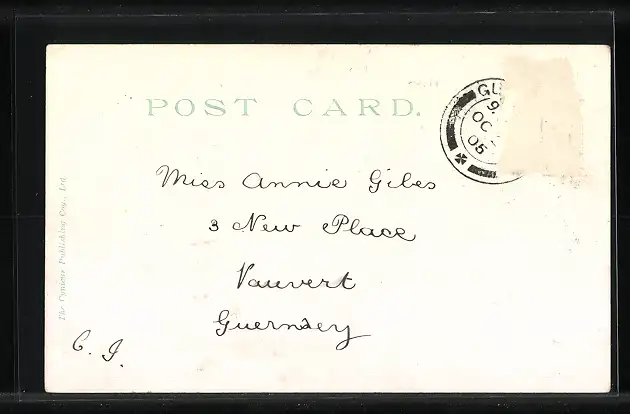 POST CARD.
GU
9.
OC
05
Miss Annie Giles
3 New Place
Vauvert
Guernsey
C. I.
The Cynicus Publishing Coy., Ltd.